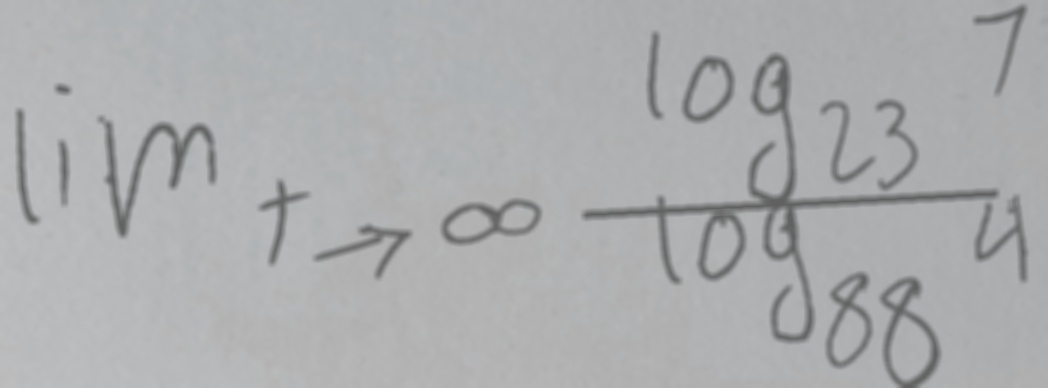 \lim_{t \to \infty} \frac{\log_{23} 7}{\log_{88} 4}